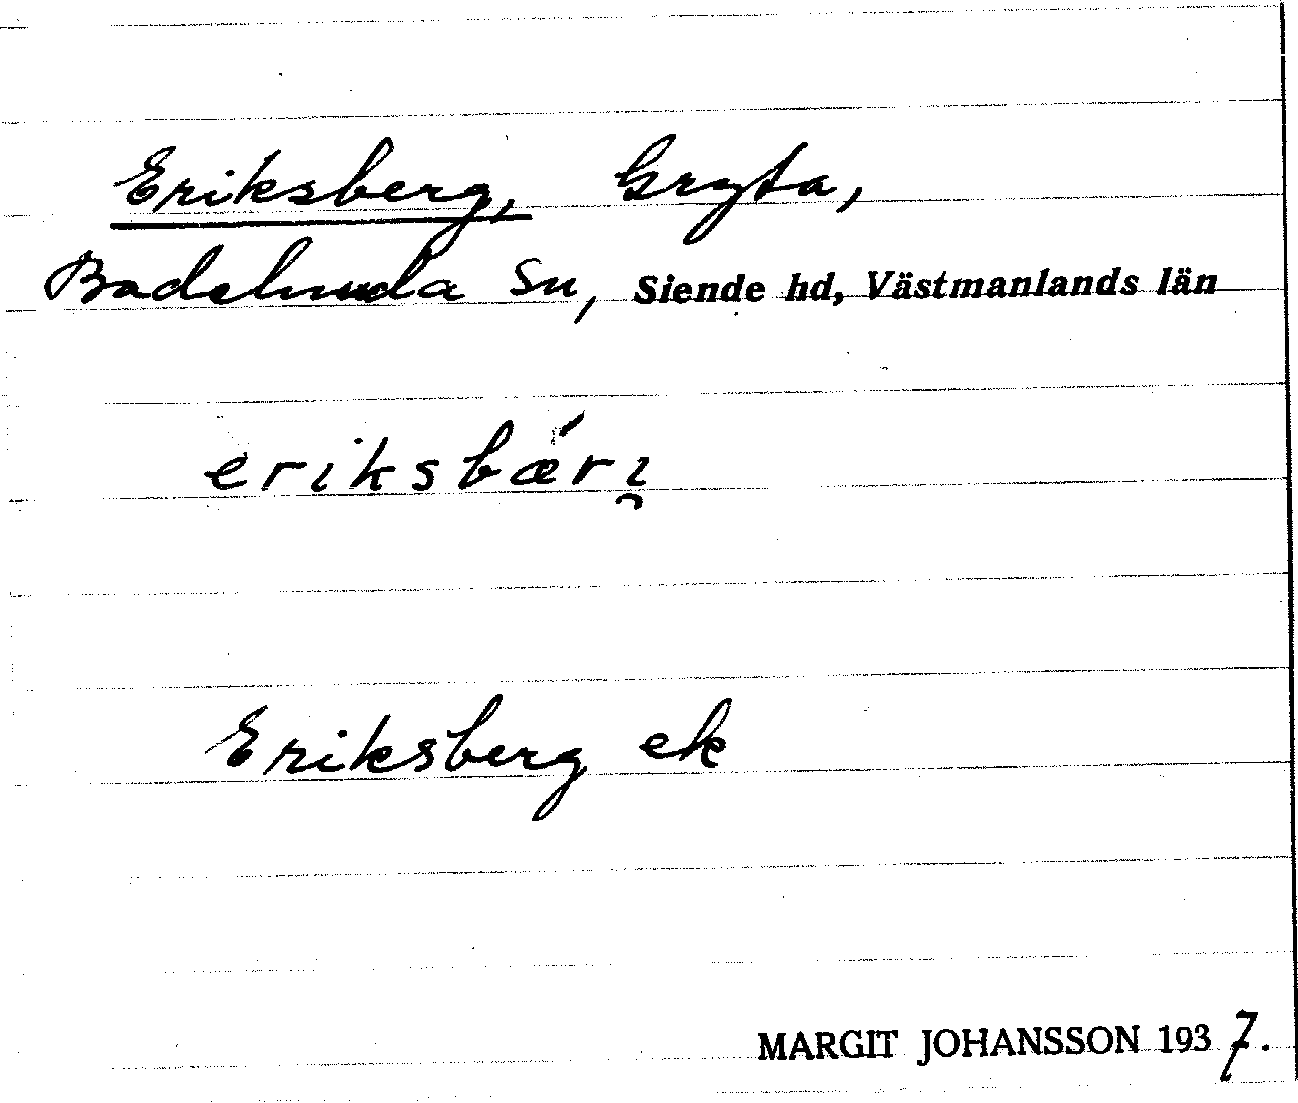 Eriksberg, Gryta,
Badelunda sn, Siende hd, Västmanlands län
eriksbǽri̯
Eriksberg ek
MARGIT JOHANSSON 1937.